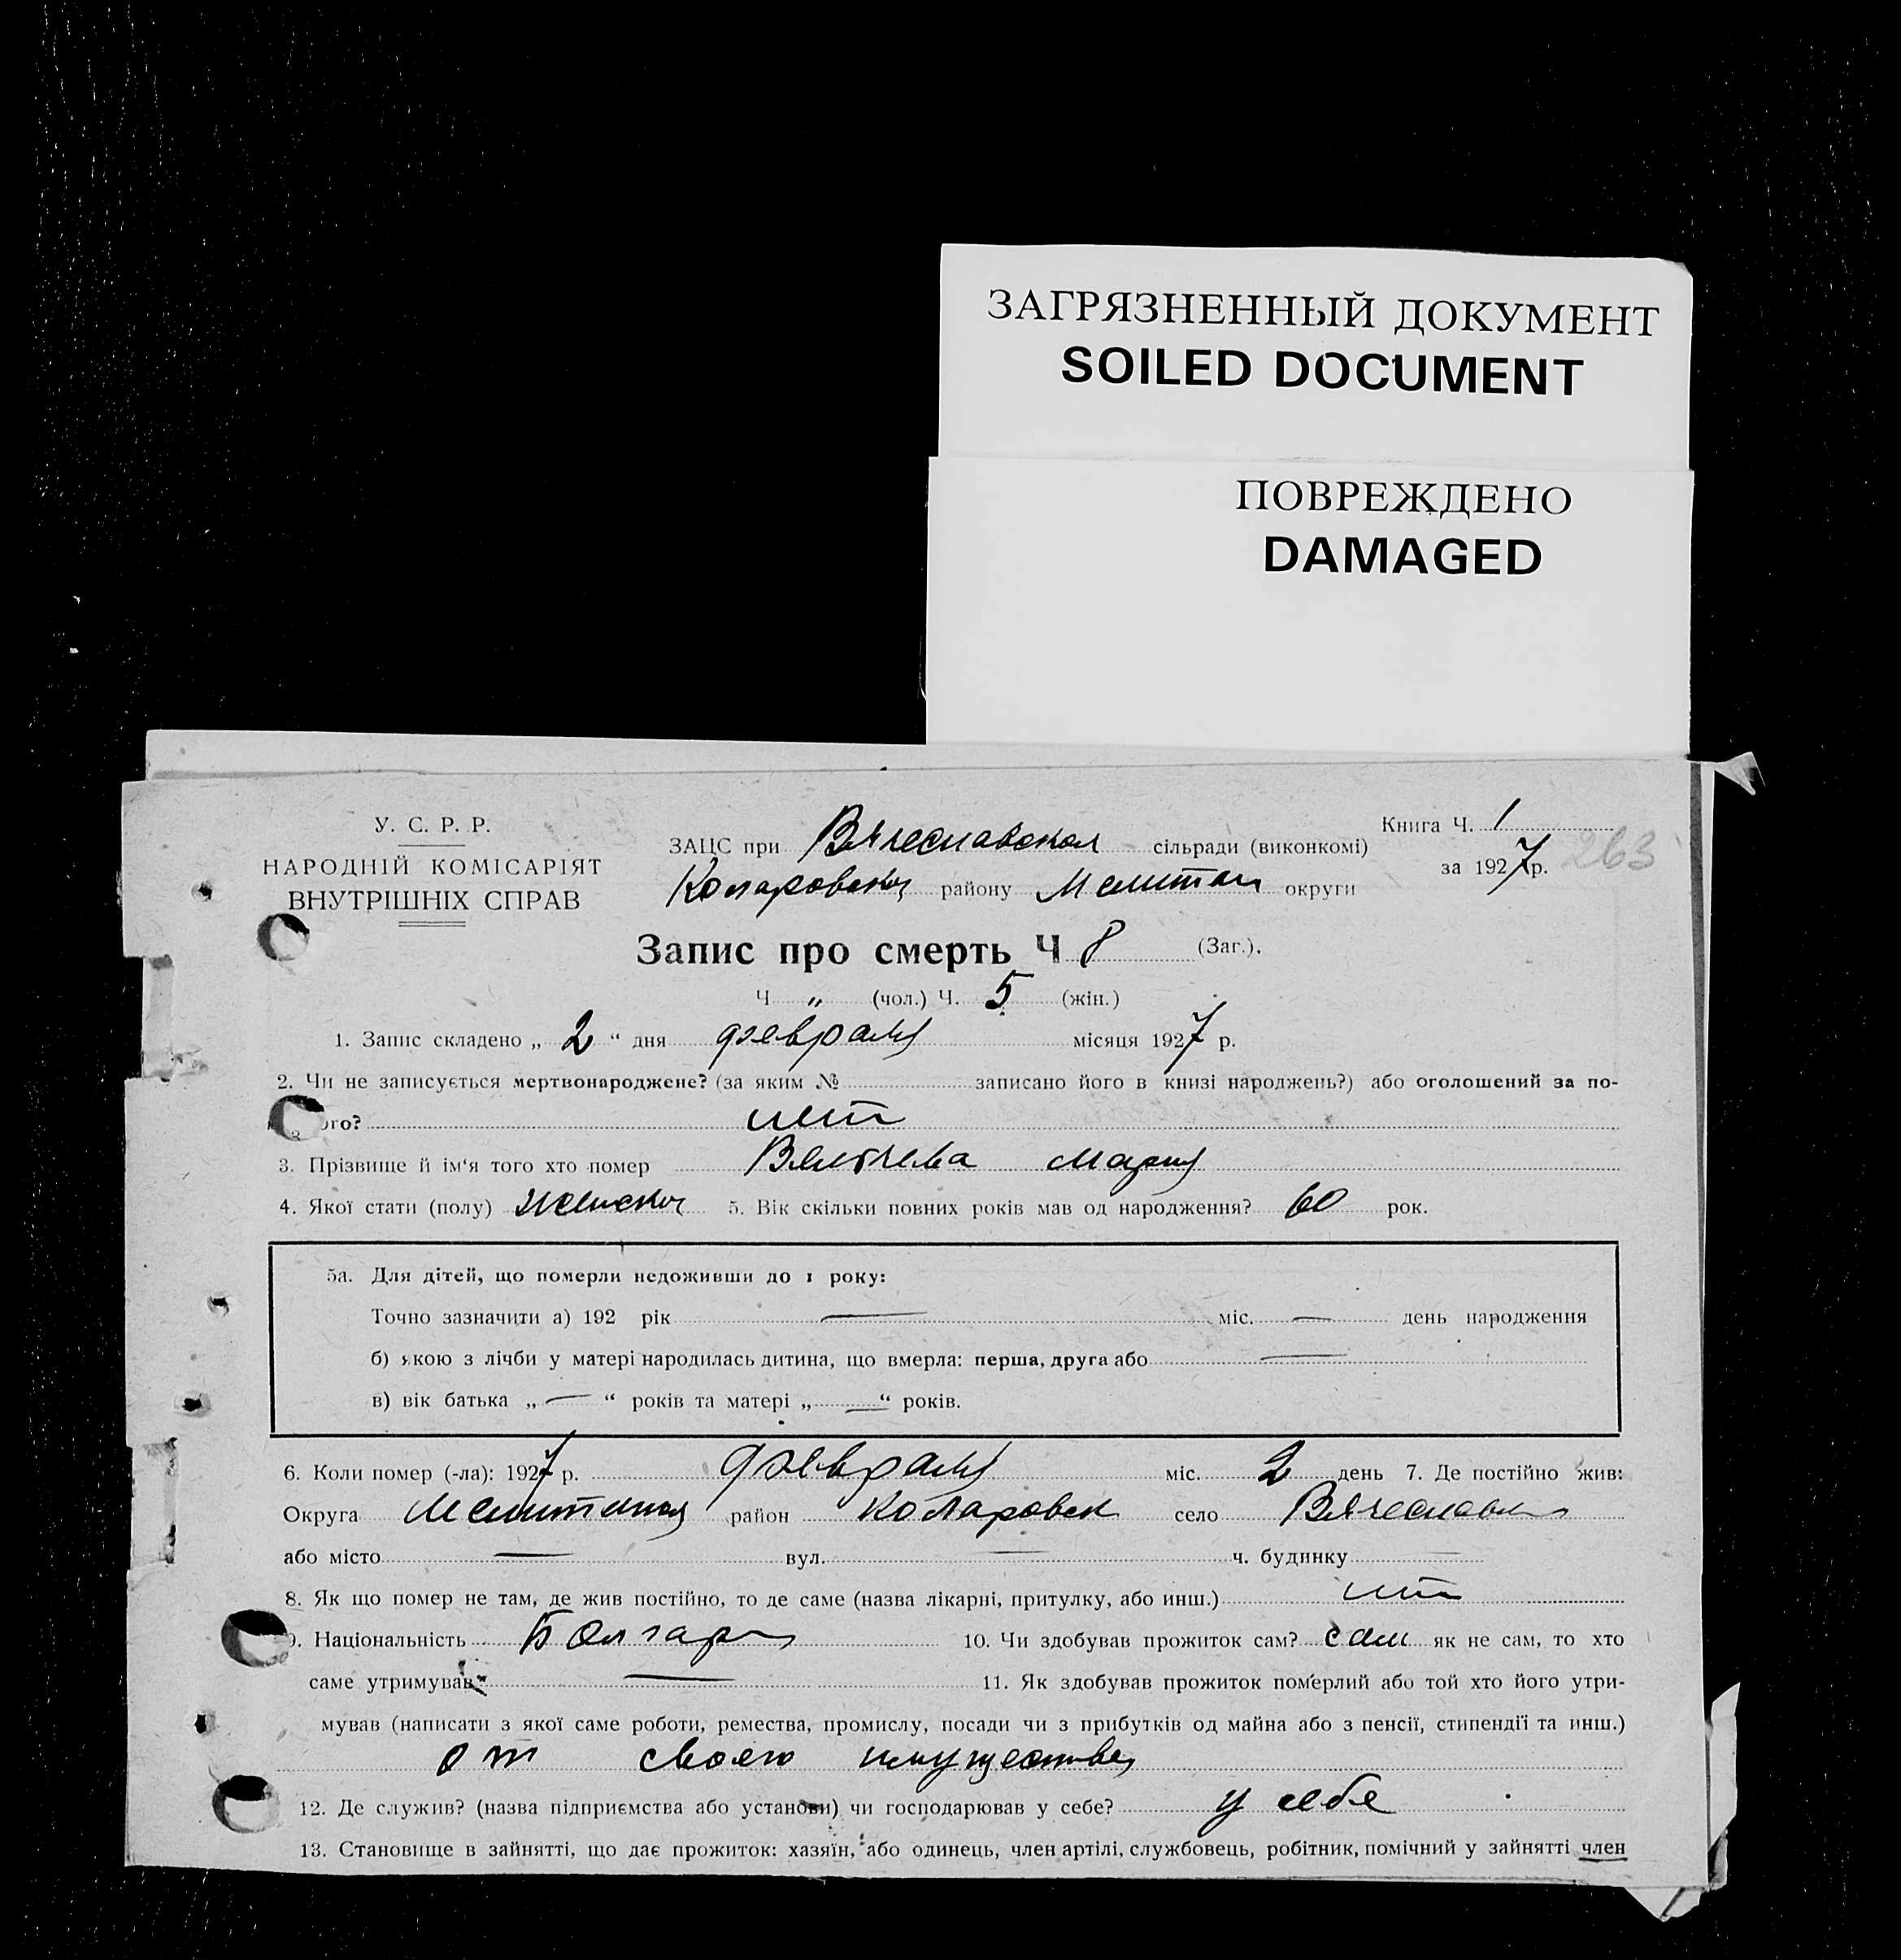 ЗАГРЯЗНЕННЫЙ ДОКУМЕНТ
SOILED DOCUMENT
ПОВРЕЖДЕНО
DAMAGED
У. С. Р. Р.
НАРОДНІЙ КОМІСАРІЯТ
ВНУТРІШНІХ СПРАВ
ЗАЦС при Вячеславской сільради (виконкомі)
Коларовский району Мелитоп округи
Книга Ч. 1
за 1927 р. 263
Запис про смерть Ч 8 (Заг.).
Ч „ (чол.) Ч. 5 (жін.)
1. Запис складено „ 2 “ дня февраля місяця 1927 р.
2. Чи не записується мертвонароджене? (за яким № записано його в книзі народжень?) або оголошений за по-
ого? нет
3. Прізвище й ім‘я того хто помер Вельчева Мария
4. Якої стати (полу) женский 5. Вік скільки повних років мав од народження? 60 рок.
5а. Для дітей, що померли недоживши до 1 року:
Точно зазначити а) 192 рік — міс. — день народження
б) якою з лічби у матері народилась дитина, що вмерла: перша, друга або —
в) вік батька „ — “ років та матері „ — “ років.
6. Коли помер (-ла): 1927 р. февраля міс. 2 день 7. Де постійно жив:
Округа район Коларовск село
або місто — вул. — ч. будинку —
8. Як що помер не там, де жив постійно, то де саме (назва лікарні, притулку, або инш.) нет
9. Національність Болгары 10. Чи здобував прожиток сам? сам як не сам, то хто
саме утримував — 11. Як здобував прожиток померлий або той хто його утри-
мував (написати з якої саме роботи, ремества, промислу, посади чи з прибутків од майна або з пенсії, стипендії та инш.)
от своего имущества
12. Де служив? (назва підприємства або установи) чи господарював у себе? у себе
13. Становище в зайнятті, що дає прожиток: хазяїн, або одинець, член артілі, службовець, робітник, помічний у зайнятті член